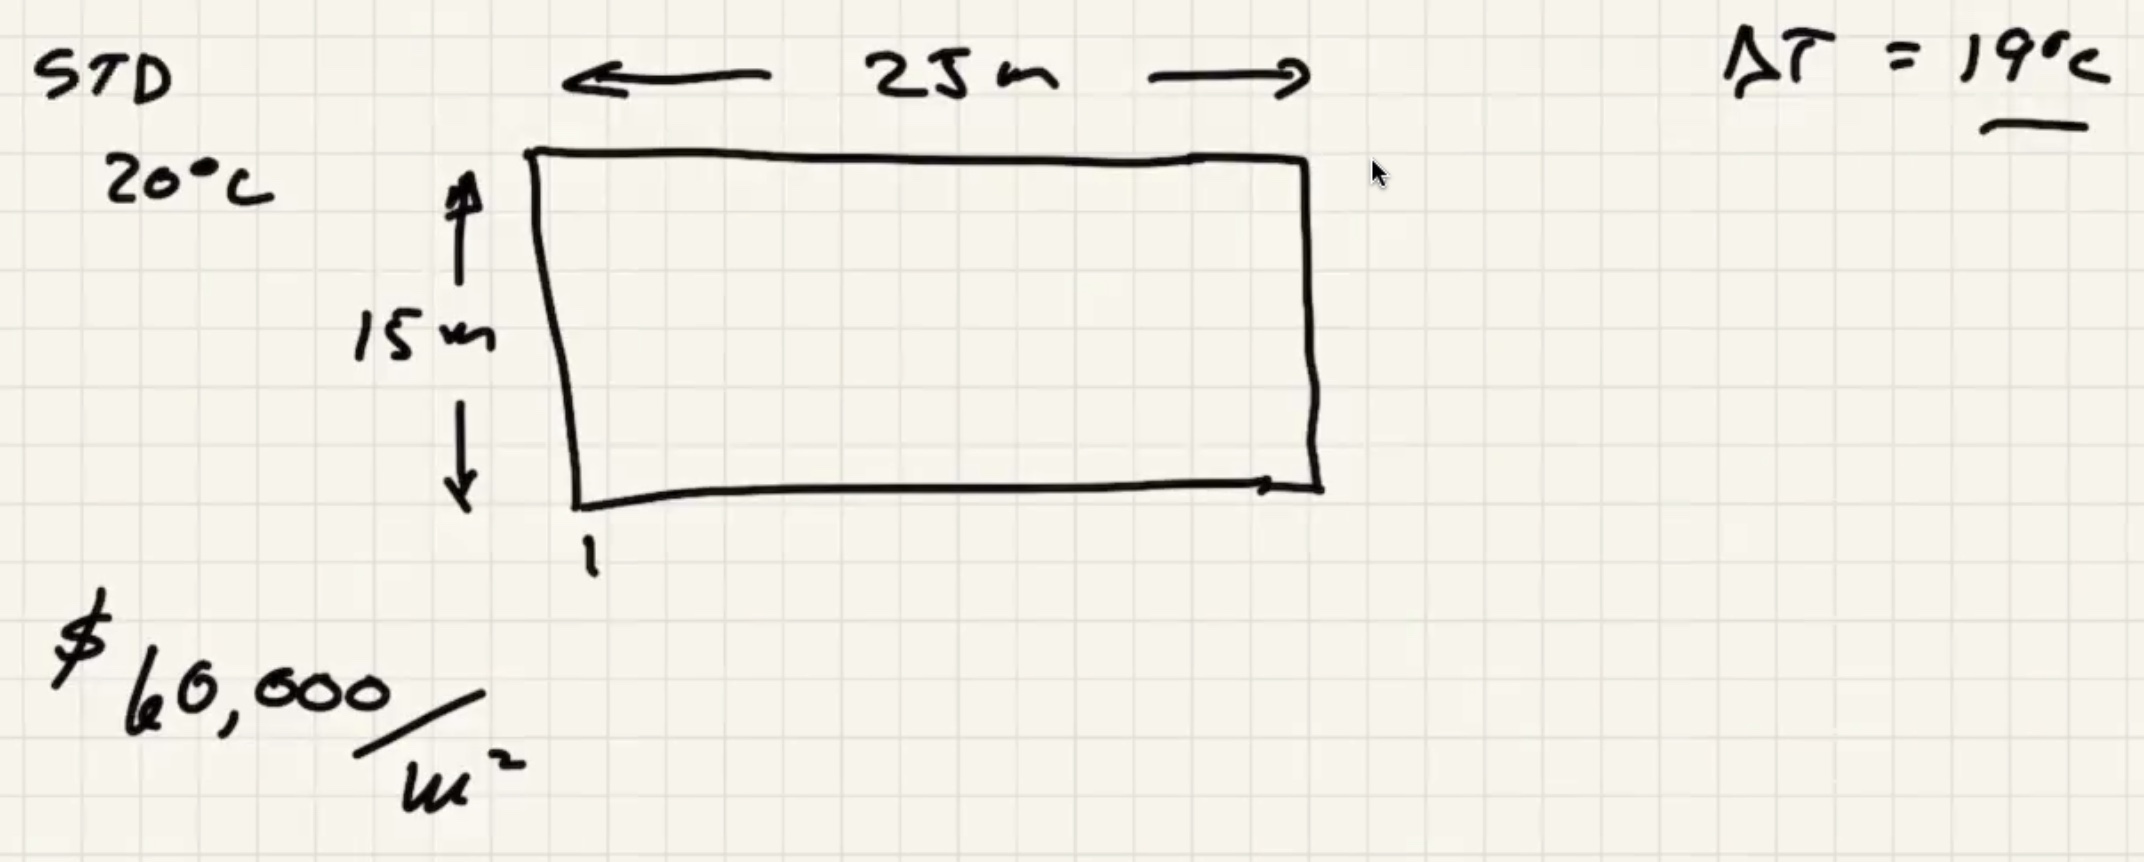 STD
20°C
25 m
ΔT = 19°C
15 m
1
$60,000/m²